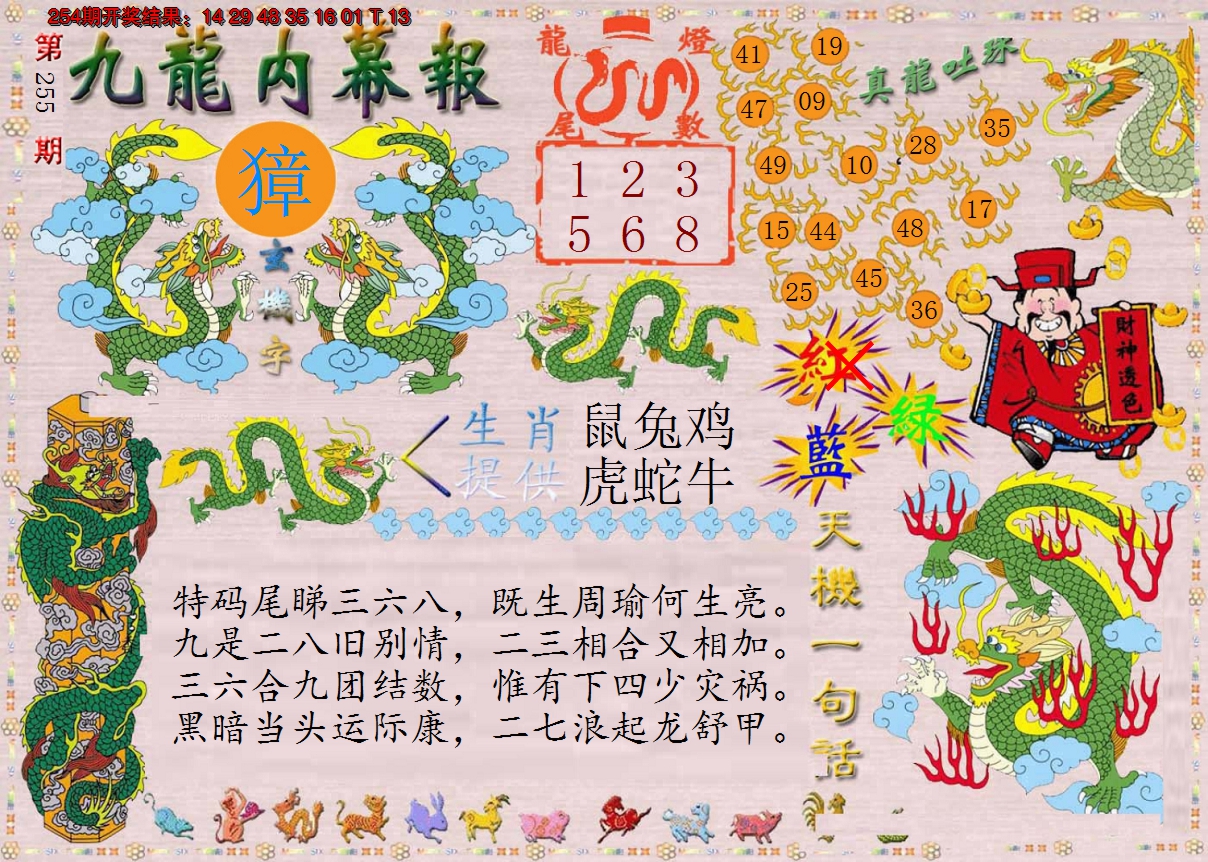 254期开奖结果：14 29 48 35 16 01 T 13
第255期
九龍内幕報
獐
玄機字
龍燈
尾數
1 2 3
5 6 8
真龍吐珠
41
19
47
09
35
28
49
10
17
15
44
48
45
25
36
財神透色
紅
綠
藍
生肖
提供
鼠兔鸡
虎蛇牛
特码尾睇三六八，既生周瑜何生亮。
九是二八旧别情，二三相合又相加。
三六合九团结数，惟有下四少灾祸。
黑暗当头运际康，二七浪起龙舒甲。
天機一句話